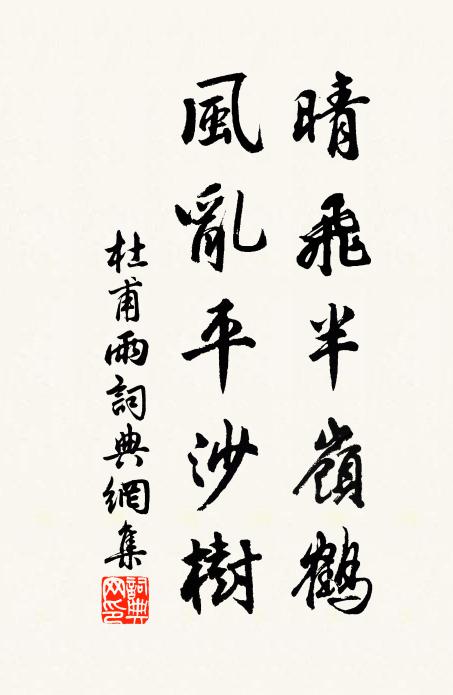 晴飛半嶺鶴
風亂平沙樹
杜甫雨詞典網集
詞典網印